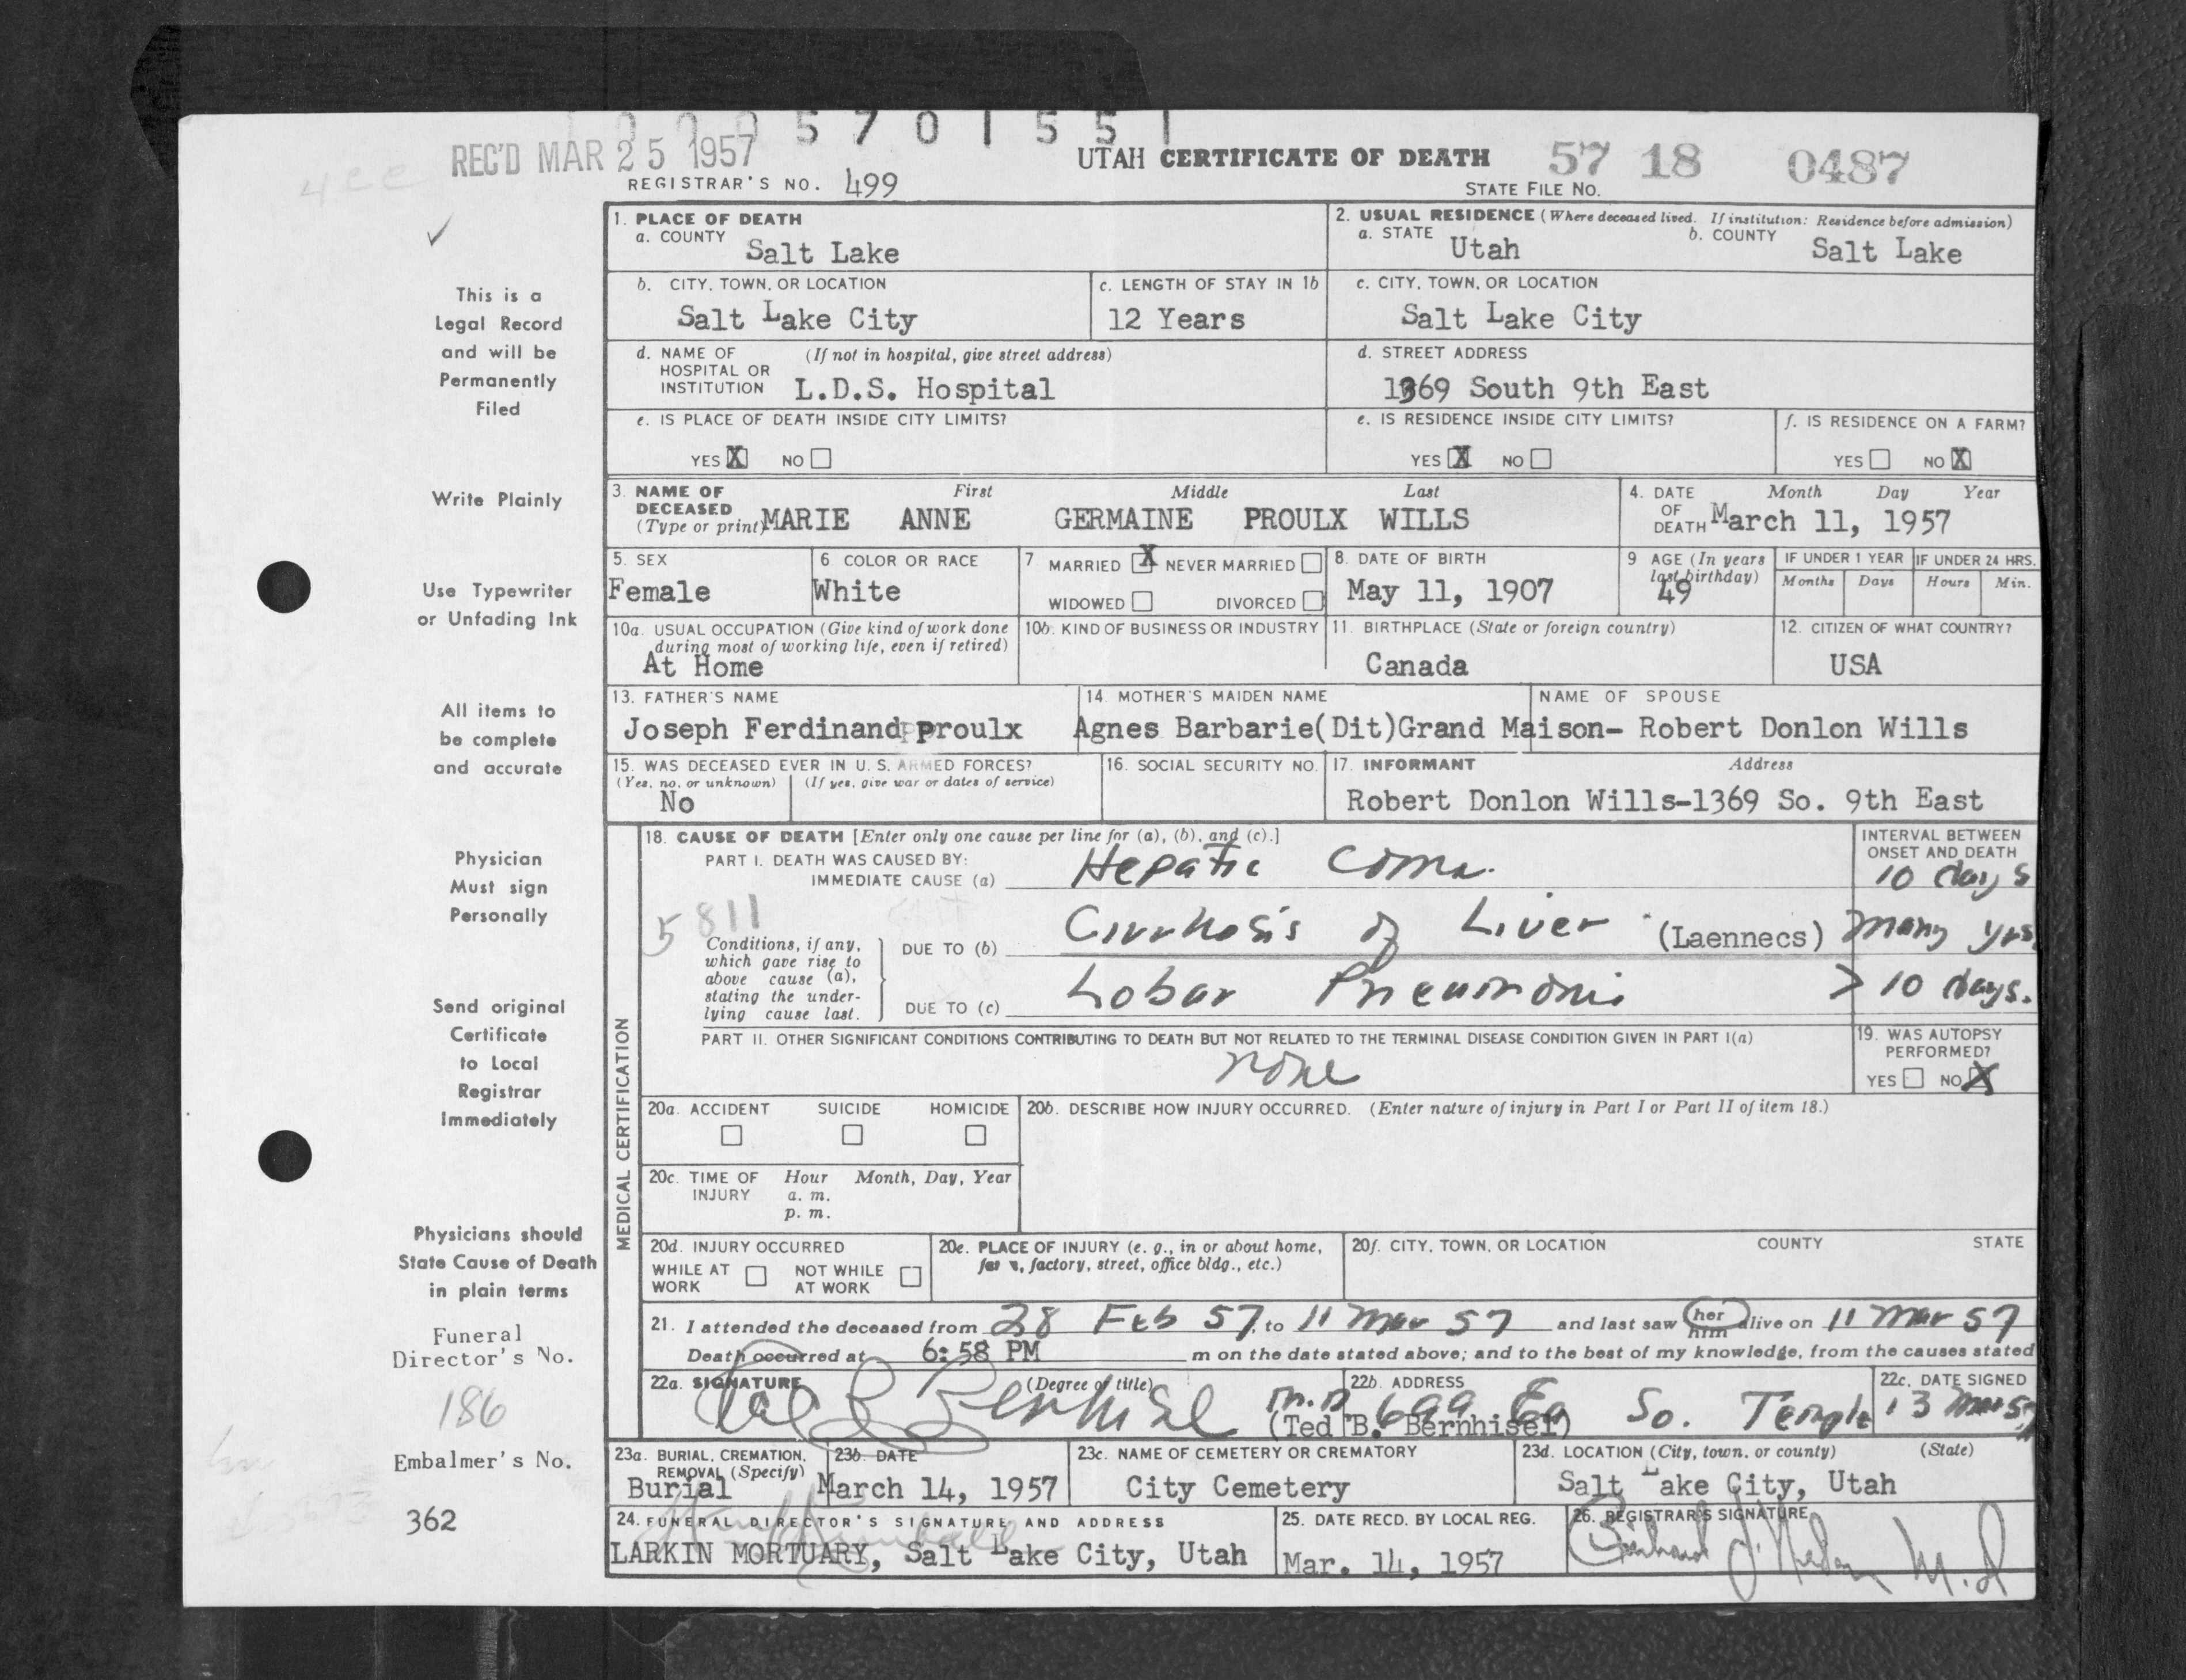 00570 1551
REC'D MAR 25 1957
UTAH CERTIFICATE OF DEATH
57 18 0487
REGISTRAR'S NO. 499
STATE FILE NO.
1. PLACE OF DEATH
a. COUNTY Salt Lake
2. USUAL RESIDENCE (Where deceased lived. If institution: Residence before admission)
a. STATE Utah b. COUNTY Salt Lake
b. CITY, TOWN, OR LOCATION Salt Lake City
c. LENGTH OF STAY IN 1b 12 Years
c. CITY, TOWN, OR LOCATION Salt Lake City
d. NAME OF HOSPITAL OR INSTITUTION (If not in hospital, give street address) L.D.S. Hospital
d. STREET ADDRESS 1369 South 9th East
e. IS PLACE OF DEATH INSIDE CITY LIMITS?
YES X NO
e. IS RESIDENCE INSIDE CITY LIMITS?
YES X NO
f. IS RESIDENCE ON A FARM?
YES NO X
3. NAME OF DECEASED (Type or print) First Middle Last
MARIE ANNE GERMAINE PROULX WILLS
4. DATE OF DEATH Month Day Year
March 11, 1957
5. SEX Female
6 COLOR OR RACE White
7 MARRIED X NEVER MARRIED
WIDOWED DIVORCED
8. DATE OF BIRTH May 11, 1907
9 AGE (In years last birthday) 49
IF UNDER 1 YEAR Months Days
IF UNDER 24 HRS. Hours Min.
10a. USUAL OCCUPATION (Give kind of work done during most of working life, even if retired)
At Home
10b. KIND OF BUSINESS OR INDUSTRY
11. BIRTHPLACE (State or foreign country)
Canada
12. CITIZEN OF WHAT COUNTRY?
USA
13. FATHER'S NAME
Joseph Ferdinand Proulx
14. MOTHER'S MAIDEN NAME
Agnes Barbarie(Dit)Grand Maison-
NAME OF SPOUSE
Robert Donlon Wills
15. WAS DECEASED EVER IN U. S. ARMED FORCES?
(Yes, no, or unknown) (If yes, give war or dates of service)
No
16. SOCIAL SECURITY NO.
17. INFORMANT Address
Robert Donlon Wills-1369 So. 9th East
MEDICAL CERTIFICATION
18. CAUSE OF DEATH [Enter only one cause per line for (a), (b), and (c).]
INTERVAL BETWEEN ONSET AND DEATH
PART I. DEATH WAS CAUSED BY:
IMMEDIATE CAUSE (a) Hepatic Coma. 10 days
5811
Conditions, if any, which gave rise to above cause (a), stating the underlying cause last.
DUE TO (b) Cirrhosis of Liver (Laennecs) many yrs
DUE TO (c) Lobar Pneumonia > 10 days.
PART II. OTHER SIGNIFICANT CONDITIONS CONTRIBUTING TO DEATH BUT NOT RELATED TO THE TERMINAL DISEASE CONDITION GIVEN IN PART I(a)
none
19. WAS AUTOPSY PERFORMED?
YES NO X
20a. ACCIDENT SUICIDE HOMICIDE
20b. DESCRIBE HOW INJURY OCCURRED. (Enter nature of injury in Part I or Part II of item 18.)
20c. TIME OF INJURY Hour Month, Day, Year
a. m.
p. m.
20d. INJURY OCCURRED
WHILE AT WORK NOT WHILE AT WORK
20e. PLACE OF INJURY (e. g., in or about home, farm, factory, street, office bldg., etc.)
20f. CITY, TOWN, OR LOCATION COUNTY STATE
21. I attended the deceased from 28 Feb 57, to 11 Mar 57 and last saw her him alive on 11 Mar 57
Death occurred at 6:58 PM m on the date stated above; and to the best of my knowledge, from the causes stated
22a. SIGNATURE (Degree or title)
Ted B Bernhisel M.D
(Ted B. Bernhisel)
22b. ADDRESS
699 Ea So. Temple
22c. DATE SIGNED
13 Mar 57
23a. BURIAL, CREMATION, REMOVAL (Specify)
Burial
23b. DATE
March 14, 1957
23c. NAME OF CEMETERY OR CREMATORY
City Cemetery
23d. LOCATION (City, town, or county) (State)
Salt Lake City, Utah
24. FUNERAL DIRECTOR'S SIGNATURE AND ADDRESS
LARKIN MORTUARY, Salt Lake City, Utah
25. DATE RECD. BY LOCAL REG.
Mar. 14, 1957
26. REGISTRAR'S SIGNATURE
M.D
This is a
Legal Record
and will be
Permanently
Filed
Write Plainly
Use Typewriter
or Unfading Ink
All items to
be complete
and accurate
Physician
Must sign
Personally
Send original
Certificate
to Local
Registrar
Immediately
Physicians should
State Cause of Death
in plain terms
Funeral
Director's No.
186
Embalmer's No.
362